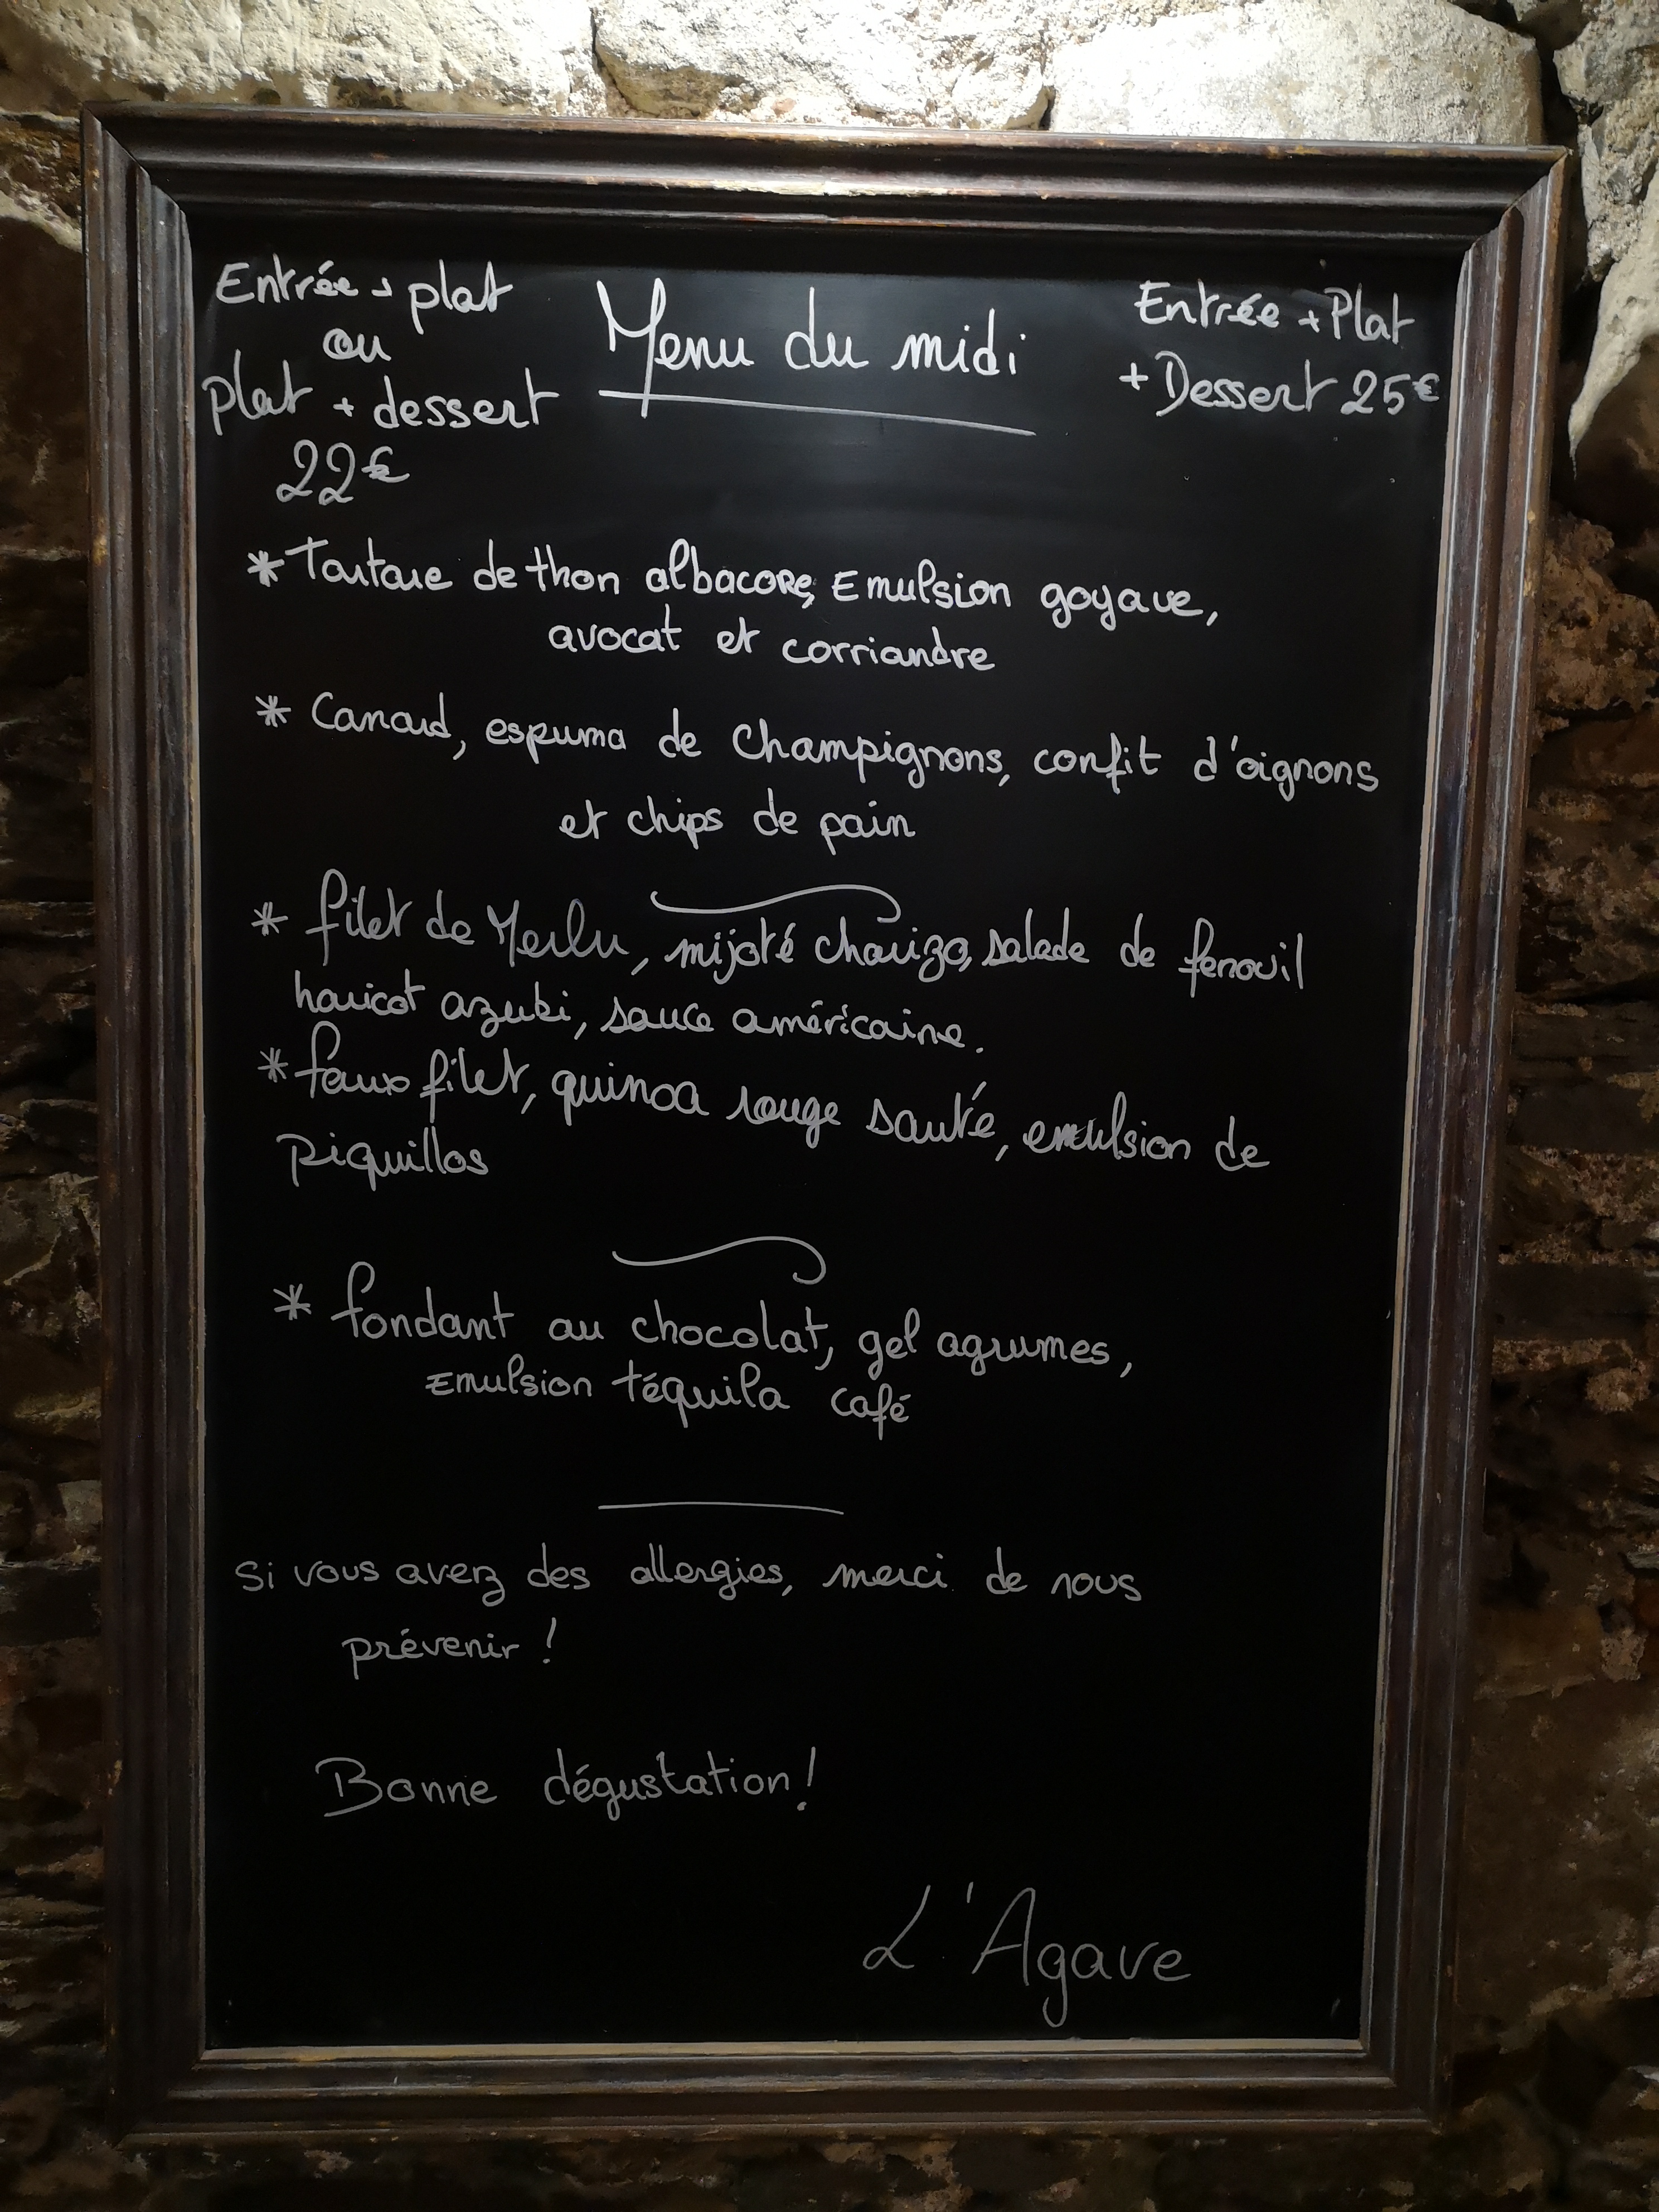 Entrée + plat
ou
plat + dessert
22€
Menu du midi
Entrée + Plat
+ Dessert 25€
* Tartare de thon albacore, Emulsion goyave,
avocat et corriandre
* Canard, espuma de Champignons, confit d'oignons
et chips de pain
* filet de Merlu, mijoté chorizo, salade de fenouil
haricot azuki, sauce américaine.
* faux filet, quinoa rouge sauté, emulsion de
piquillos
* fondant au chocolat, gel agrumes,
Emulsion téquila café
Si vous avez des allergies, merci de nous
prévenir !
Bonne dégustation !
L'Agave